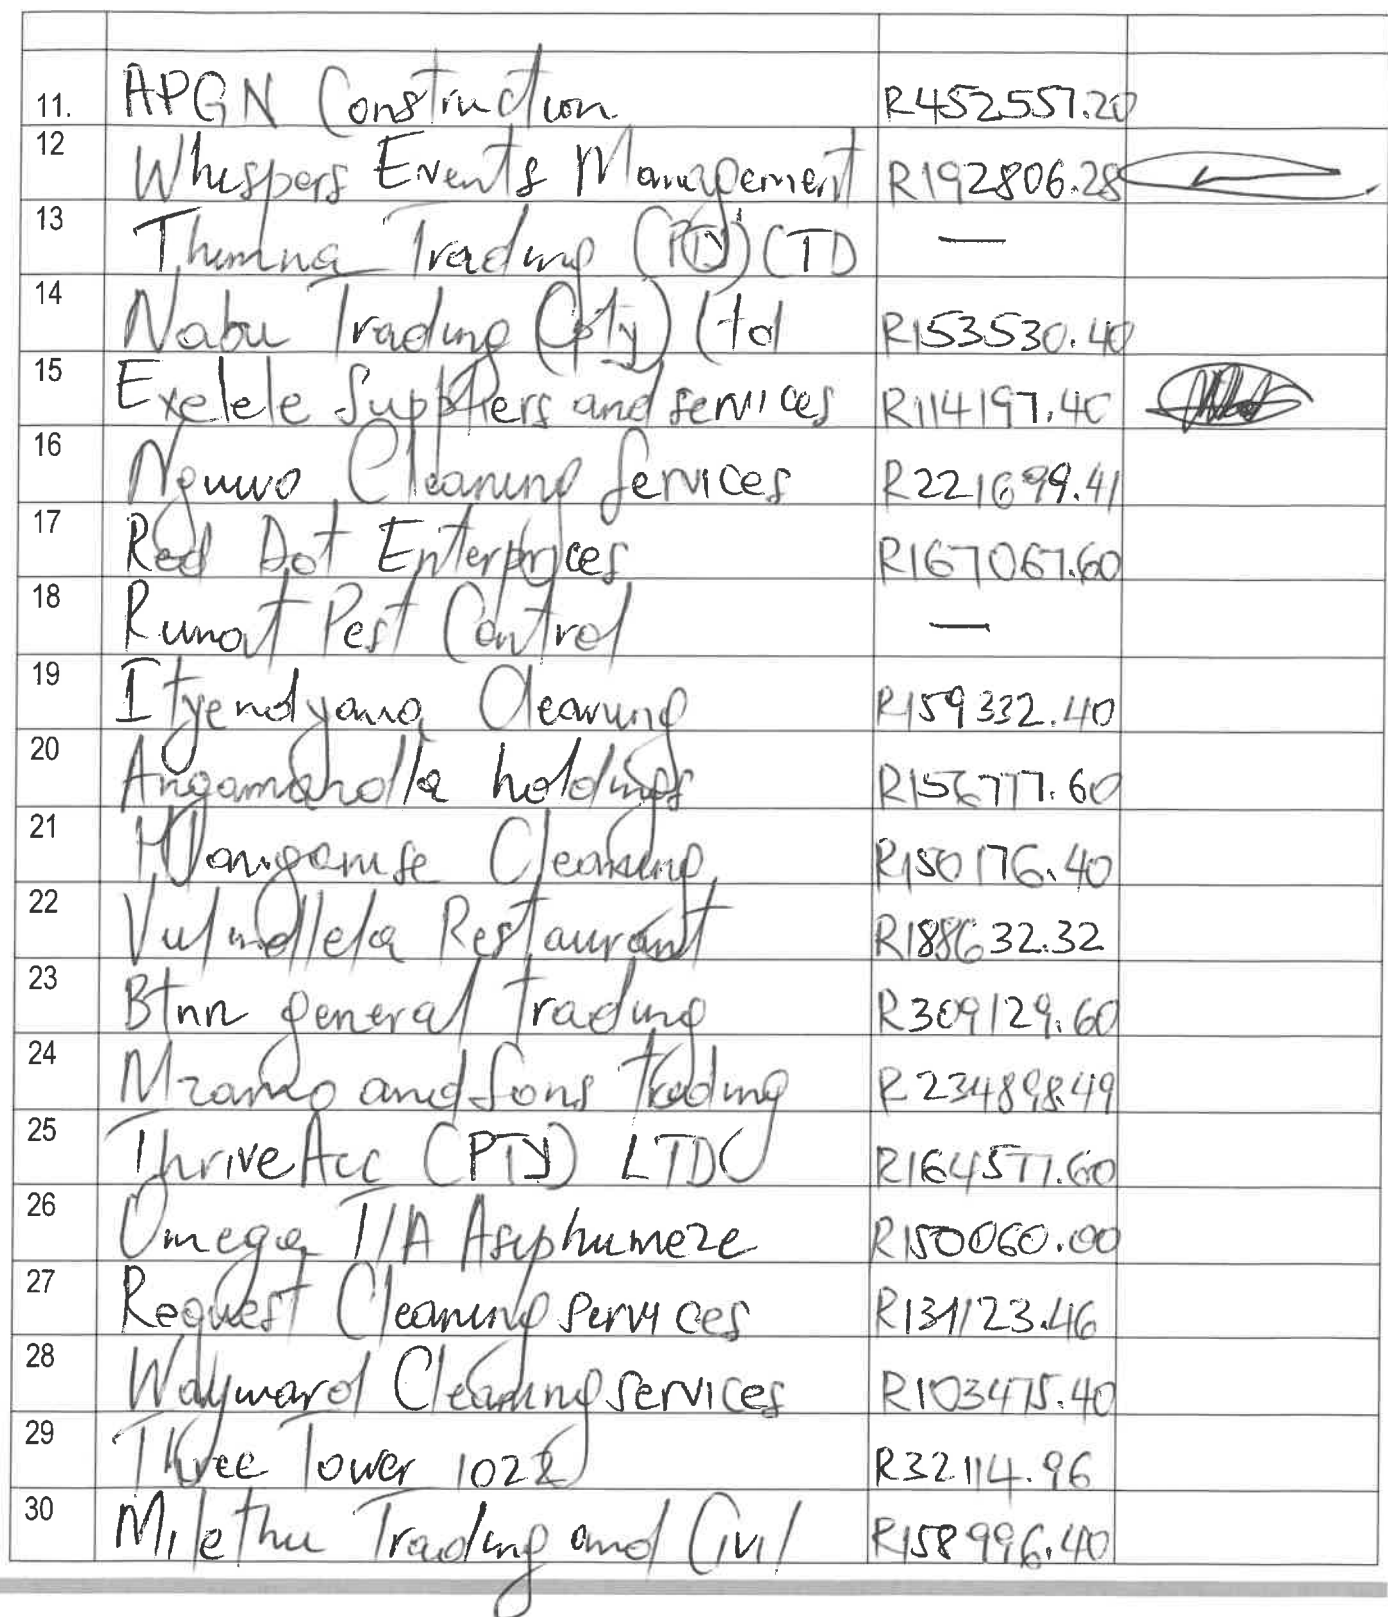 11. APGN Construction R452557.20
12 Whispers Events Management R192806.28
13 Thimna Trading (PTY) LTD —
14 Nabu Trading (Pty) Ltd R153530.40
15 Exelele Suppliers and services R114197.40
16 Cleaning Services R221699.41
17 Red Dot Enterprices R167067.60
18 Runat Pest Control —
19 Ityendyana Cleaning R159332.40
20 holdings R156777.60
21 Hlanganise Cleaning R150176.40
22 Vulindlela Restaurant R188632.32
23 Btnn general Trading R309129.60
24 Mzamo and Sons Trading R234898.49
25 Thrive Acc (PTY) LTD R164577.60
26 Omega T/A Asiphumeze R150060.00
27 Request Cleaning Services R131123.46
28 Wayward Cleaning services R103475.40
29 Three Tower 1028 R32114.96
30 Milethu Trading and Civil R158996.40